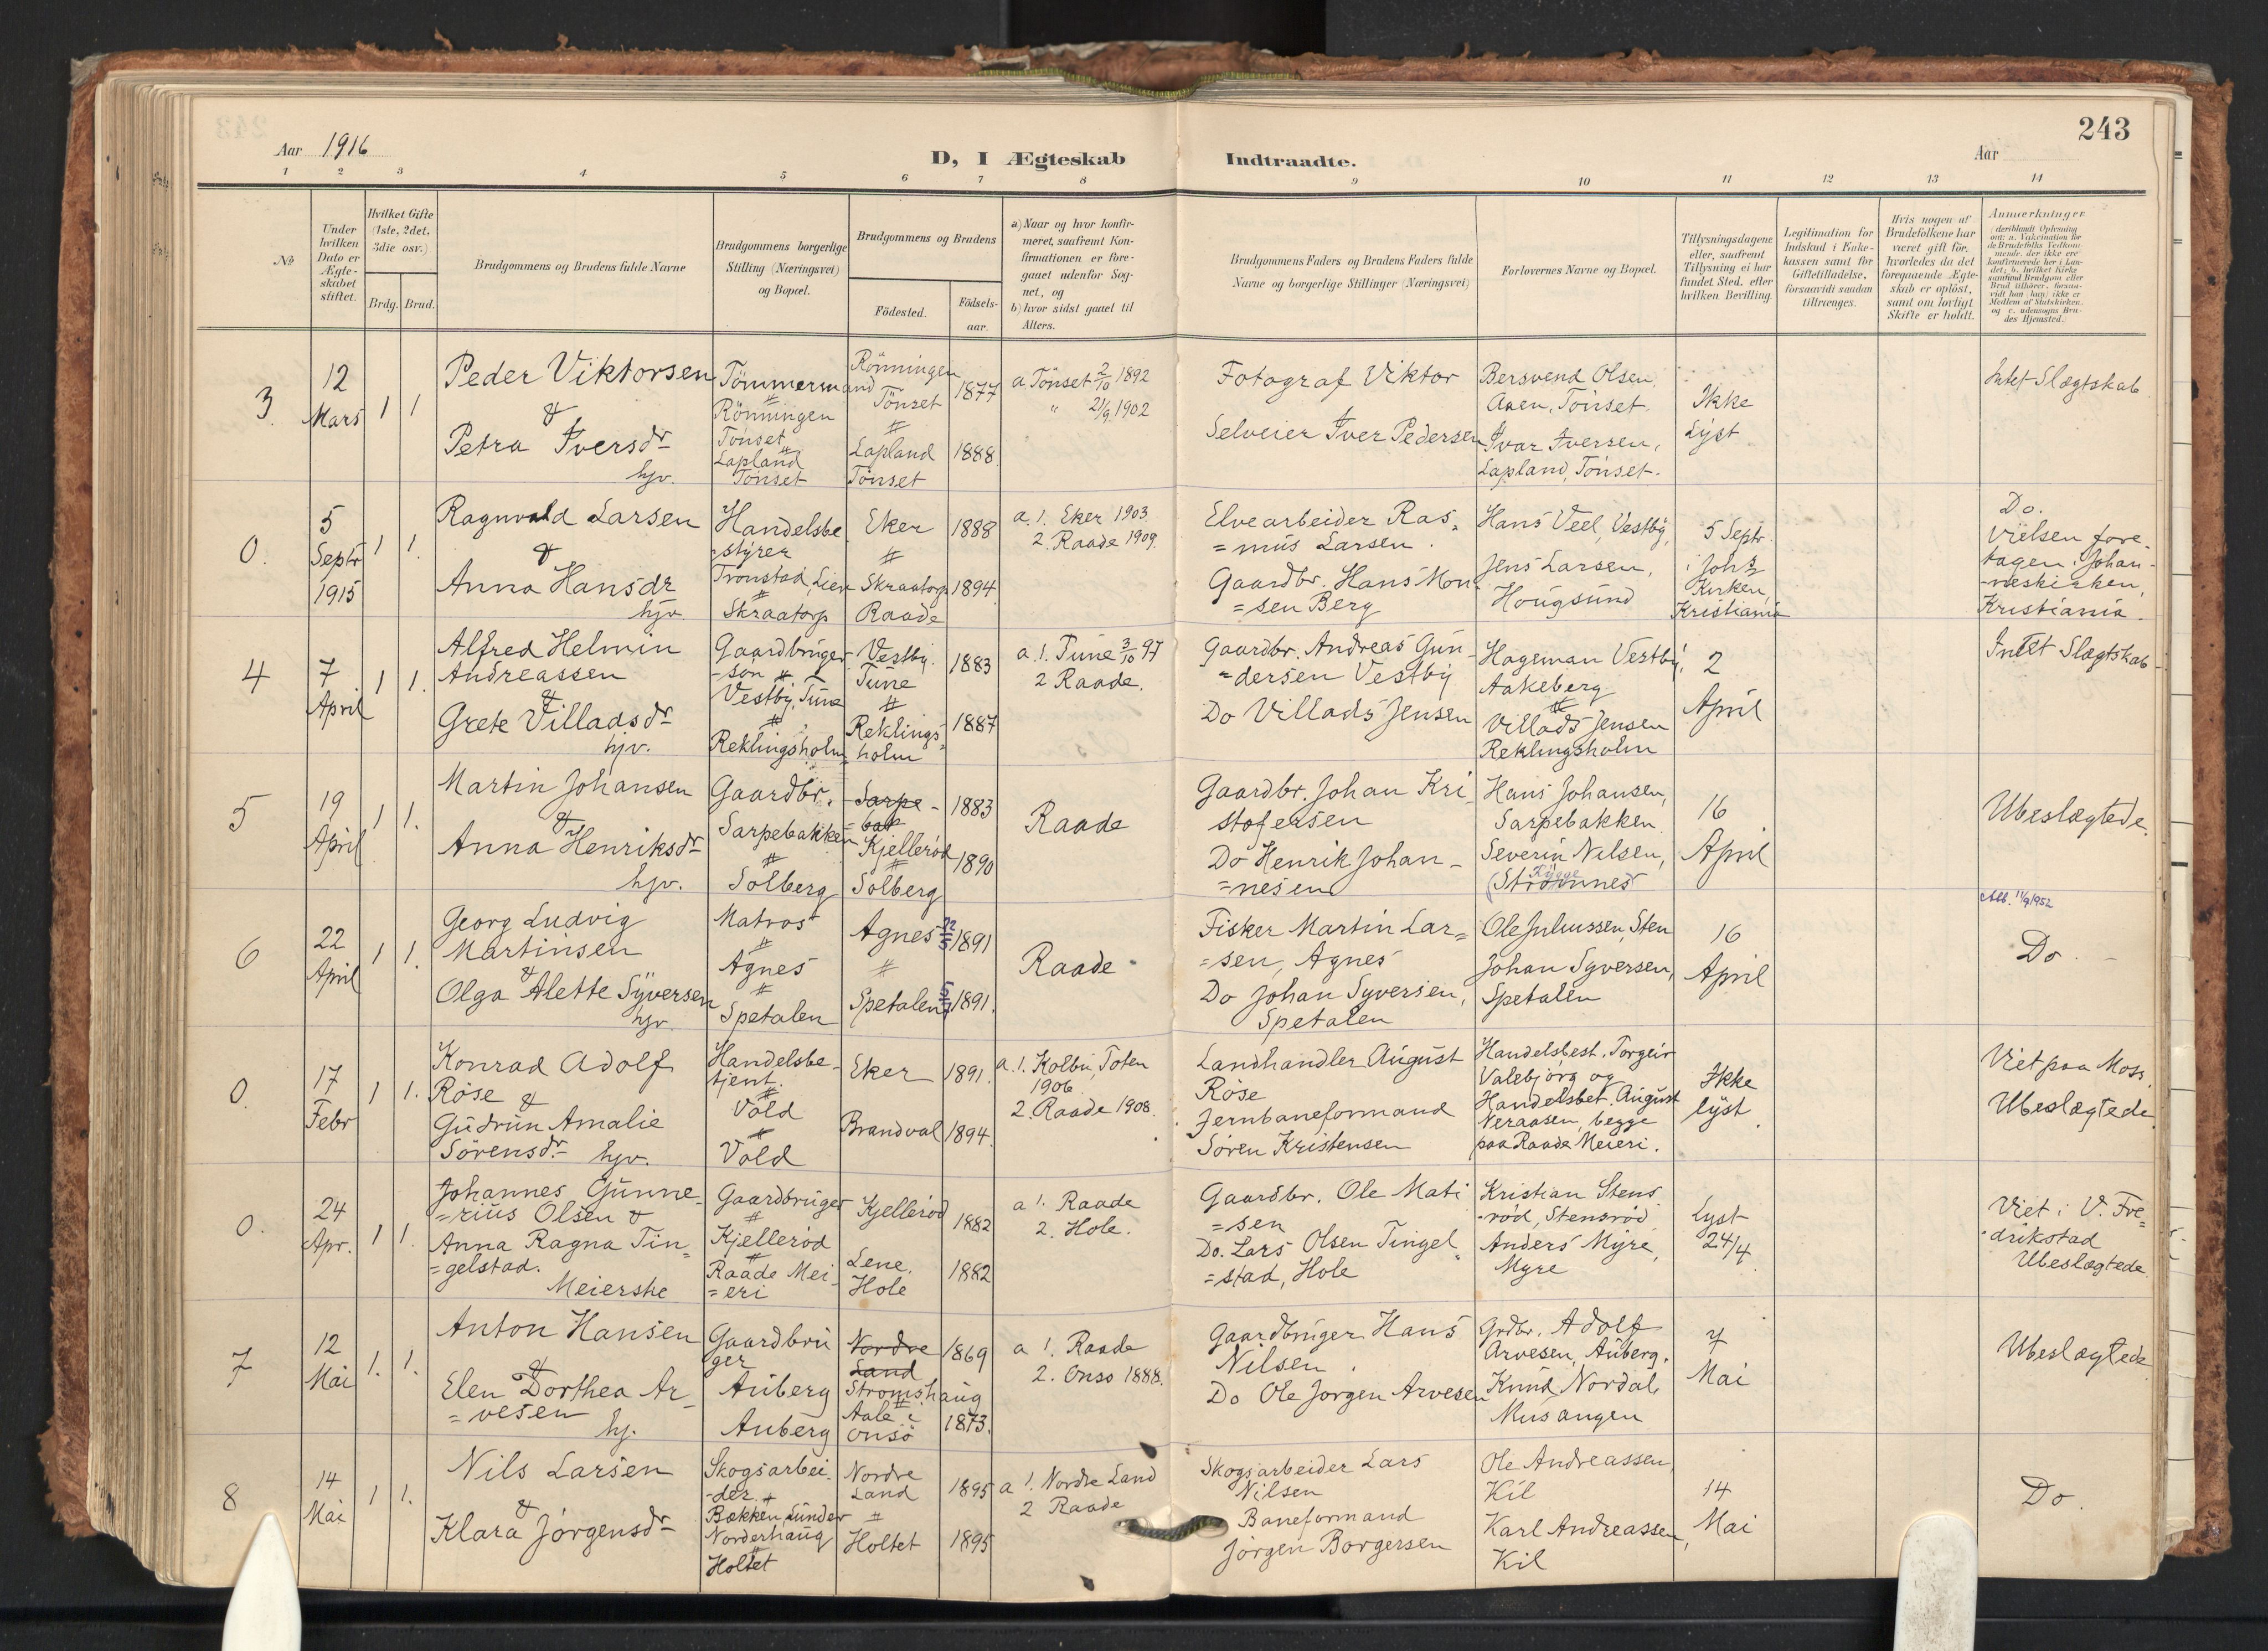 243
Aar 1916
D, I Ægteskab Indtraadte.
Aar
1 2 3 4 5 6 7 8 9 10 11 12 13 14
No
Under hvilken Dato er Ægte-skabet stiftet.
Hvilket Gifte (1ste, 2det, 3die osv.)
Brdg. Brud.
Brudgommens og Brudens fulde Navne
Brudgommens borgerlige Stilling (Næringsvei) og Bopæl.
Brudgommens og Brudens
Födested.
Födsels-aar.
a) Naar og hvor konfir-meret, saafremt Kon-firmationen er fore-gaaet udenfor Sog-net, og
b) hvor sidst gaaet til Alters.
Brudgommens Faders og Brudens Faders fulde Navne og borgerlige Stillinger (Næringsvei)
Forlovernes Navne og Bopæl.
Tillysningsdagene eller, saafremt Tillysning ei har fundet Sted, efter hvilken Bevilling.
Legitimation for Indskud i Enke-kassen samt for Giftetilladelse, forsaavidt saadan tiltrænges.
Hvis nogen af Brudefolkene har været gift för, hvorledes da det foregaaende Ægte-skab er oplöst, samt om lovligt Skifte er holdt.
Anmerkninger (deriblandt Oplysning om: a. Vakcination for de Brudefolks Vedkom-mende, der ikke ere konfirmerede her i Lan-det; b. hvilket Kirke-samfund Brudgom eller Brud tilhører, forsaa-vidt han (hun) ikke er Medlem af Statskirken, og c. udensogns Bru-des Hjemsted.
3.
12
Mars
1 1
Peder Viktorsen
&
Petra Iversdr
hjv.
Tömmermand
Rönningen
Tönset
Lapland
Tönset
Rönningen
Tönset
Lapland
Tönset
1877
1888
a Tönset 2/10 1892
" 21/9 1902
Fotograf Viktor
Selveier Iver Pedersen
Bersvend Olsen,
Aaen, Tönset.
Ivar Iversen,
Lapland, Tönset.
Ikke
Lyst
Intet Slægtskab
0.
5
Septr
1915
1 1.
Ragnvald Larsen
&
Anna Hansdr
hjv.
Handelsbe
styrer
Tronstad, Lier
Skraatorp
Eker
Skraatorp
Raade
1888
1894
a. 1. Eker 1903
2. Raade 1909.
Elvearbeider Ras-
=mus Larsen.
Gaardbr. Hans Mon
=sen Berg
Hans Veel, Vestby,
Jens Larsen,
Hougsund
5 Septr.
i Johs
Kirken,
Kristiania
Do.
Vielsen fore-
tagen i Johan-
-neskirken,
Kristiania.
4
7
April
1 1.
Alfred Helmin
Andreassen
&
Grete Villadsdr
hjv.
Gaardbruger
-sön
Vestby, Tune
Reklingsholm
Vestby.
Tune
Reklings-
holm
1883
1887
a. 1. Tune 3/10 97
2 Raade.
Gaardbr. Andreas Gun-
=dersen Vestby
Do Villads Jensen
Hageman Vestby,
Aakeberg
Villads Jensen
Reklingsholm
2
April
Intet Slægtskab
5
19
April
1 1.
Martin Johansen
&
Anna Henriksdr
hjv.
Gaardbr.
Sarpebakken
Solberg
Sarpe-
bak
Kjellerød
Solberg
1883
1890
Raade
Gaardbr. Johan Kri-
stofersen
Do Henrik Johan-
=nesen
Hans Johansen,
Sarpebakken
Severin Nilsen,
Rygge
(Strømnes
16
April
Ubeslægtede.
6
22
April
1 1.
Georg Ludvig
Martinsen
&
Olga Alette Syversen
hjv.
Matros
Agnes
Spetalen
Agnes
Spetalen
1891
1891.
Raade
Fisker Martin Lar=
=sen, Agnes
Do Johan Syversen,
Spetalen
Ole Juliussen, Sten
Johan Syversen,
Spetalen
16
April
11/9 1952
Do.
0.
17
Febr
1 1.
Konrad Adolf
Röse &
Gudrun Amalie
Sörensdr hjv.
Handelsbe-
tjent.
Vold
Vold
Eker
Brandval
1891.
1894.
a. 1. Kolbu, Toten
1906
2. Raade 1908.
Landhandler August
Röse
Jernbaneformand
Søren Kristensen
Handelsbest. Torgeir
Valebjørg og
Handelsbet. August
Neraasen, begge
paa Raade Meieri.
Ikke
lyst.
Viet paa Moss.
Ubeslægtede
0.
24
Apr.
1 1.
Johannes Gunne-
=rius Olsen &
Anna Ragna Tin=
=gelstad.
Meierske
Gaardbruger
Kjellerød
Raade Mei-
=eri
Kjellerød
Lene,
Hole
1882
1882
a 1. Raade
2. Hole.
Gaardbr. Ole Mati
=sen
Do. Lars Olsen Tingel=
=stad, Hole
Kristian Stens
-röd, Stensröd
Anders Myre,
Myre
Lyst
24/4.
Viet i V. Fre=
drikstad
Ubeslægtede
7
12
Mai
1. 1.
Anton Hansen
&
Elen Dorthea Ar-
=vesen
hj.
Gaardbru
ger
Auberg
Auberg
Nordre
Land
Strømshaug
Aale i
Onsö
1869
1873.
a 1. Raade
2. Onsø 1888.
Gaardbruger Hans
Nilsen.
Do Ole Jørgen Arvesen
Grdbr. Adolf
Arvesen, Auberg.
Knud Nordal,
Musangen
7
Mai
Ubeslægtede
8
14
Mai
1 1.
Nils Larsen
&
Klara Jörgensdr
Skogsarbei-
-der
Bækken Lunder
Norderhaug
Holtet
Nordre
Land
Holtet
1895
1895
a 1. Nordre Land
2 Raade
Skogsarbeider Lars
Nilsen
Baneformand
Jörgen Borgersen
Ole Andreassen,
Kil
Karl Andreassen,
Kil
14
Mai
Do.